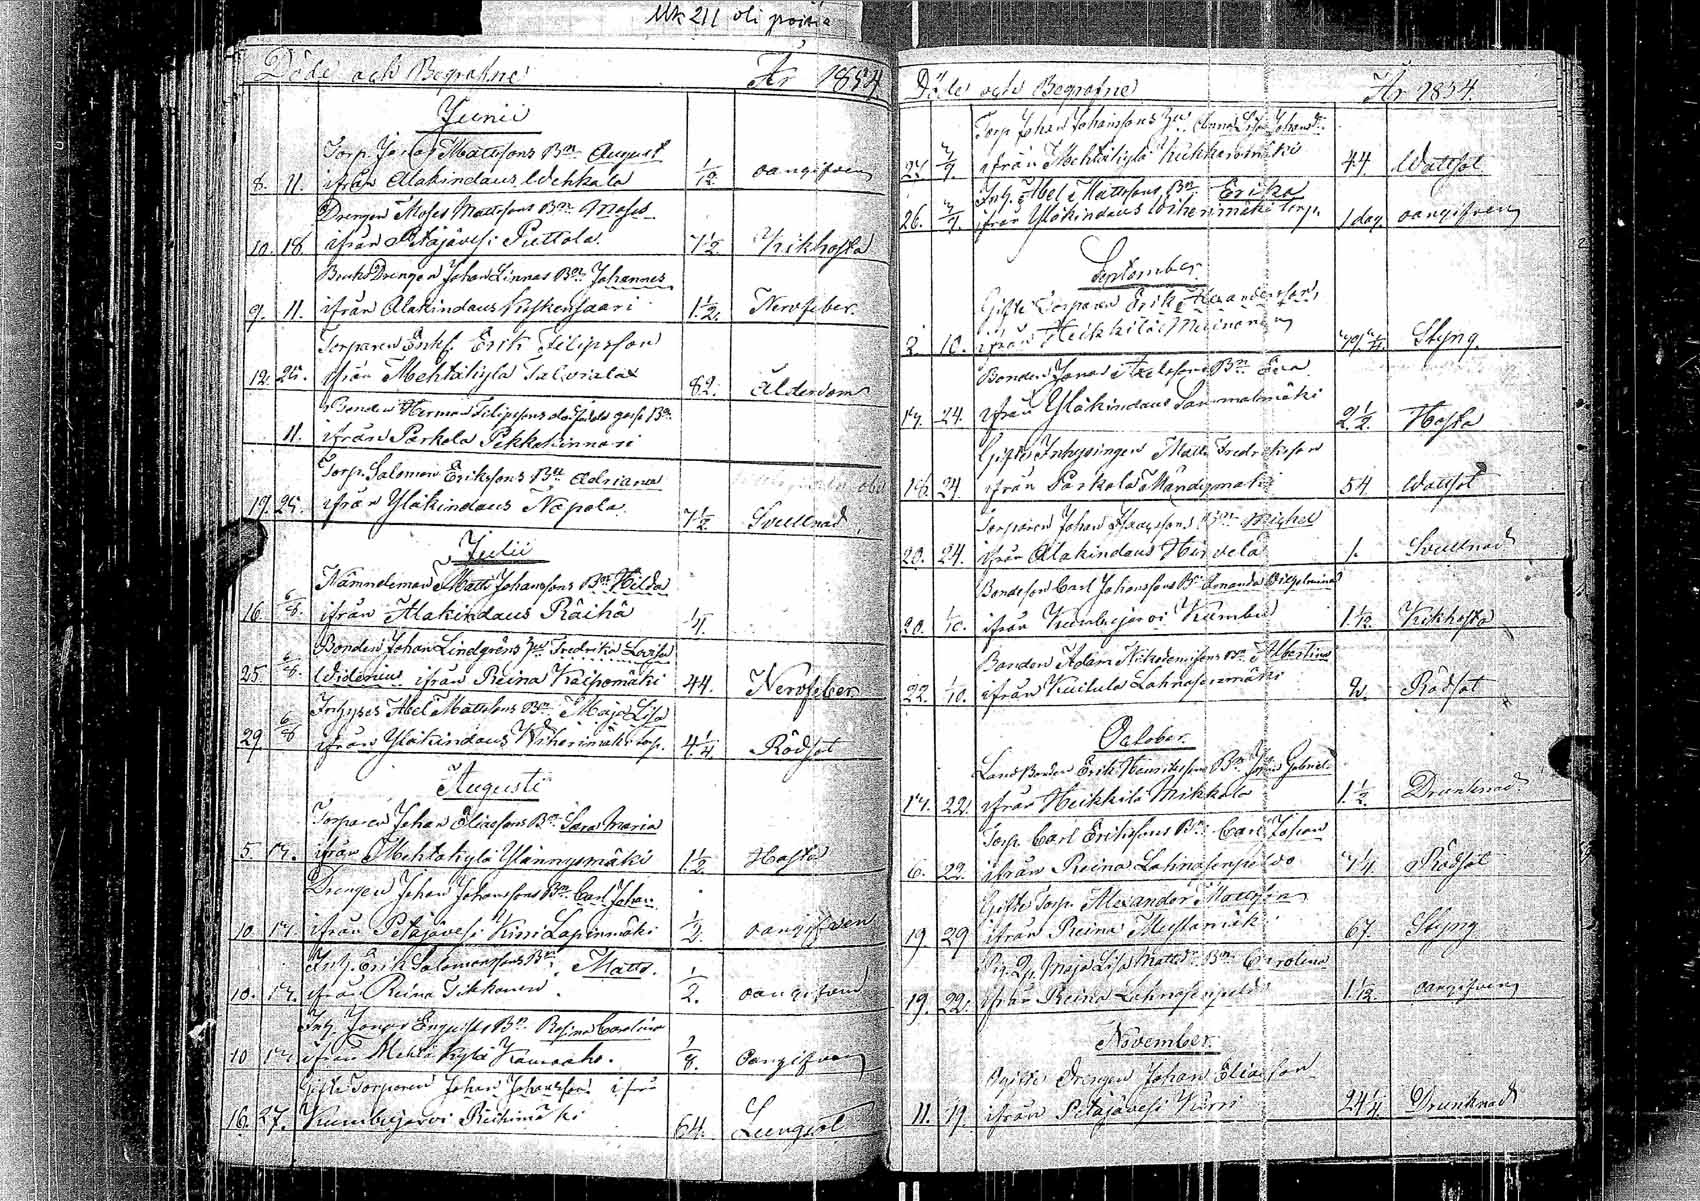 Mk 211 oli poissa
Döde och Begrafne År 1854
Junii
Torp. Jonas Mattssons Bn August
8. 11. ifrån Alakindaus Wehkala 1/12 oangifven
Drengen Moses Mattssons Bn Moses
10. 18. ifrån Petäjävesi Puttola. 7 1/2 Kikhosta
Bruks Drengen Johan Linnas Bn Johannes
9. 11. ifrån Alakindaus Koskensaari 1 1/2. Nervfeber.
Torparen Enkf. Erik Filipsson
12. 25. ifrån Mehtäkylä Talviala 82. Ålderdom
Bonden Herman Filipssons dödfödde gosse Bn
11. ifrån Parkola Pekkakinnari
Torp. Salomon Erikssons Bn Adriana
19. 25. ifrån Yläkindaus Napola 7 1/2 Svullnad
Julii
Nämndeman Matts Johanssons Bn Hilda
16. 6/8. ifrån Alakindaus Räihä 1/4.
Bonden Johan Lindgrens Hu Fredrika Lovisa
25. 6/8. Widenius ifrån Reina Kaipomäki 44. Nervfeber
Inhyses Abel Mattssons Bn Maja Lisa
29 6/8 ifrån Yläkindaus Wiherimäki torp. 4 1/4. Rödsot
Augusti
Torparen Johan Eliassons Bn Sara Maria
5. 17. ifrån Mehtäkylä Ylännysmäki 1 1/2. Hosta
Drengen Johan Johanssons Bn Carl Johan
10. 17. ifrån Petäjävesi Kini Lapinmäki 1/2. oangifven
Inh. Erik Salomonssons Bn Matts.
10. 17. ifrån Reina Tikkanen. 1/2. oangifven
Inh. Jonas Enqvists Bn Rosina Carolina
10 17. ifrån Mehtäkylä 1/8. oangifven
Gifte Torparen Johan Johansson ifrån
16. 27. Kumbujärvi Riihimäki 64. Lungsot
Döde och Begrafne År 1854.
Torp. Johan Johanssons Hu. Anna Lisa Johansdr.
27. 3/9. ifrån Mehtäkylä Kukkaromäki 44 Wattsot
Inh. Abel Mattssons Bn Erika
26. 3/9. ifrån Yläkindaus Wiherimäki torp. 1 dag. oangifven
September
Gifte Torparen Erik Alexandersson
2. 10. ifrån Heikkilä Muinonen Styng
Bonden Jonas Axelssons Bn Eva
17. 24. ifrån Yläkindaus Sammalmäki 2 1/2. Hosta
Gifte Inhysingen Matts Fredriksson
16. 24. ifrån Parkola Mändymäki 54 Wattsot
Torparen Johan Isacssons Bn Michel
20. 24. ifrån Alakindaus Hirvelä 1. Svullnad
Bondeson Carl Johanssons Bn Amanda Wilhelmina
20. 1/10. ifrån Kumbujärvi Kumbu 1 1/12. Kikhosta
Bonden Adam Nikodemssons Bn Albertina
22. 1/10. ifrån Kuitula Lahnasenmäki 2. Rödsot
October
Landbonden Erik Henrikssons Bn Gabriel
17. 22. ifrån Heikkilä Mikkola 1 1/2. Drunknad
Torp. Carl Erikssons Bn Carl Johan
6. 22. ifrån Reina Lahnasenpelto 7 1/4 Rödsot
Gifte Torp. Alexander Mattsson
19. 29 ifrån Reina Mustamäki 67. Styng
Pig. Maja Lisa Mattsdr Bn Carolina
19. 22. ifrån Reina Lahnasenpelto 1 1/12. oangifven
November.
Ogifte Drengen Johan Eliasson
11. 19. ifrån Petäjävesi Kärri 24 1/4 Drunknad